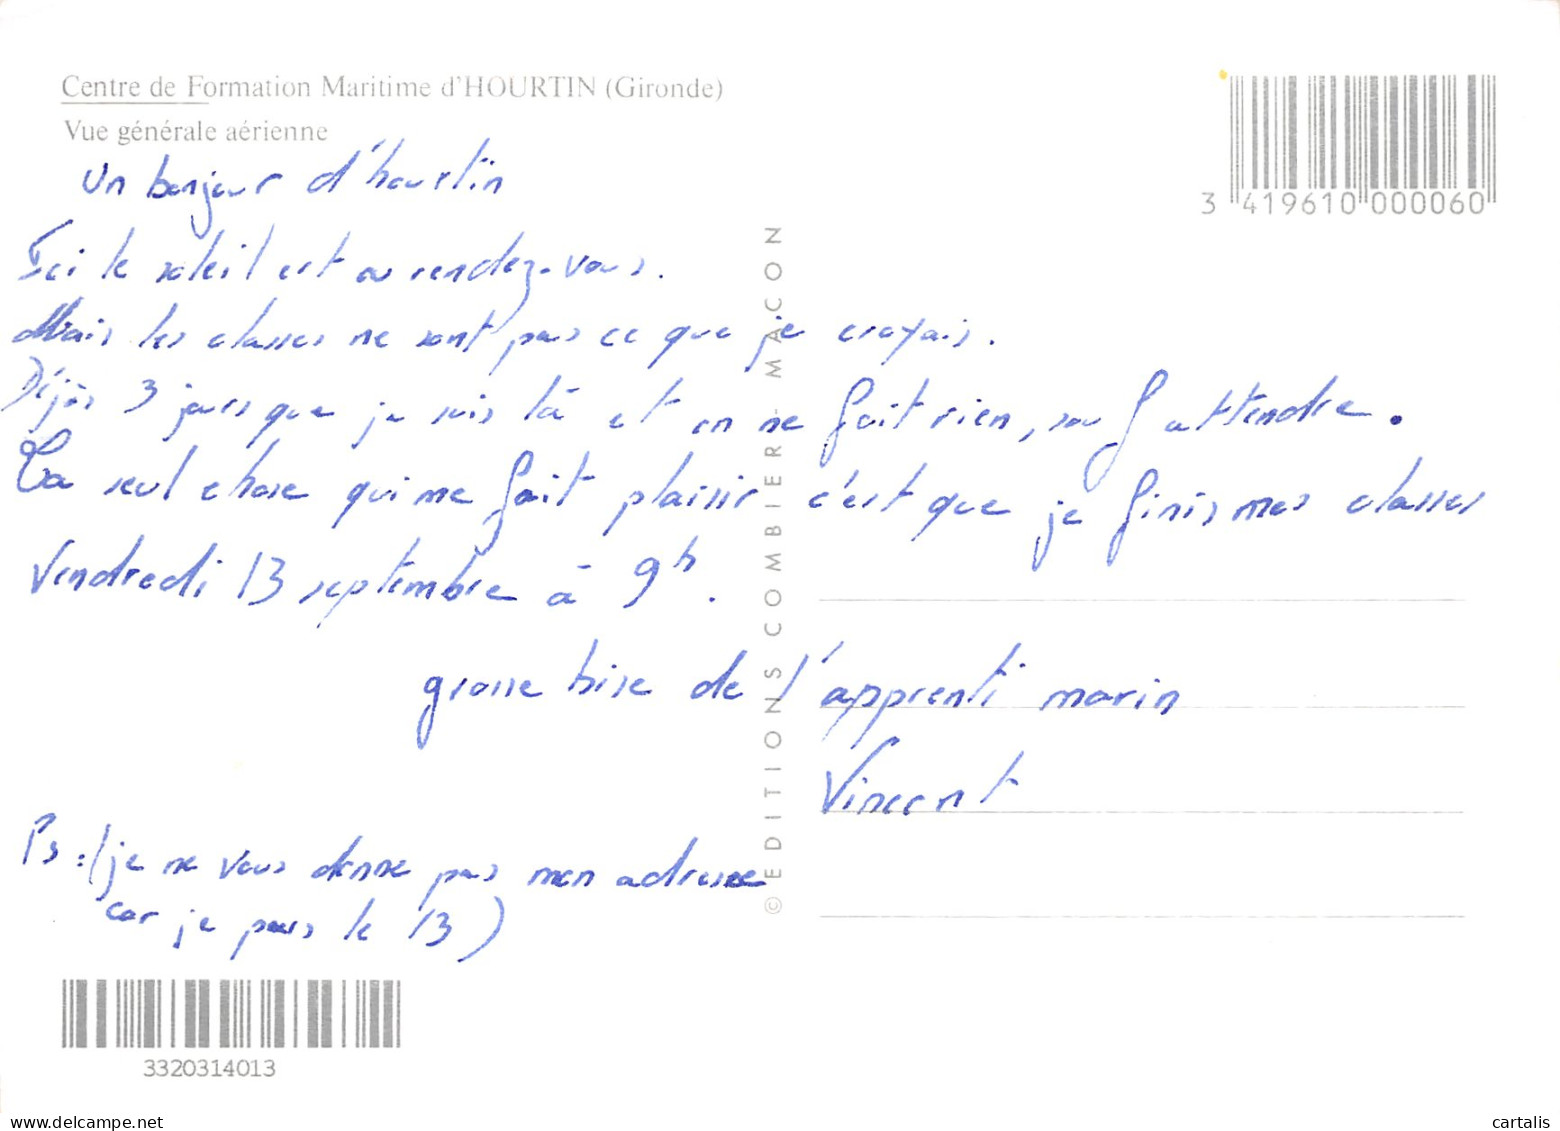 Centre de Formation Maritime d'HOURTIN (Gironde)
Vue générale aérienne
3 419610 000060
Un bonjour d'hourtin
Ici le soleil est au rendez-vous.
Mais les classes ne sont pas ce que je croyais.
Déjàs 3 jours que je suis là et on ne fait rien, sauf attendre.
La seul chose qui me fait plaisir c'est que je finis mes classes
Vendredi 13 septembre à 9h.
grosse bise de l'apprenti marin
Vincent
Ps : (je ne vous donne pas mon adresse
car je pars le 13)
© EDITIONS COMBIER MACON
3320314013
delcampe.net
cartalis